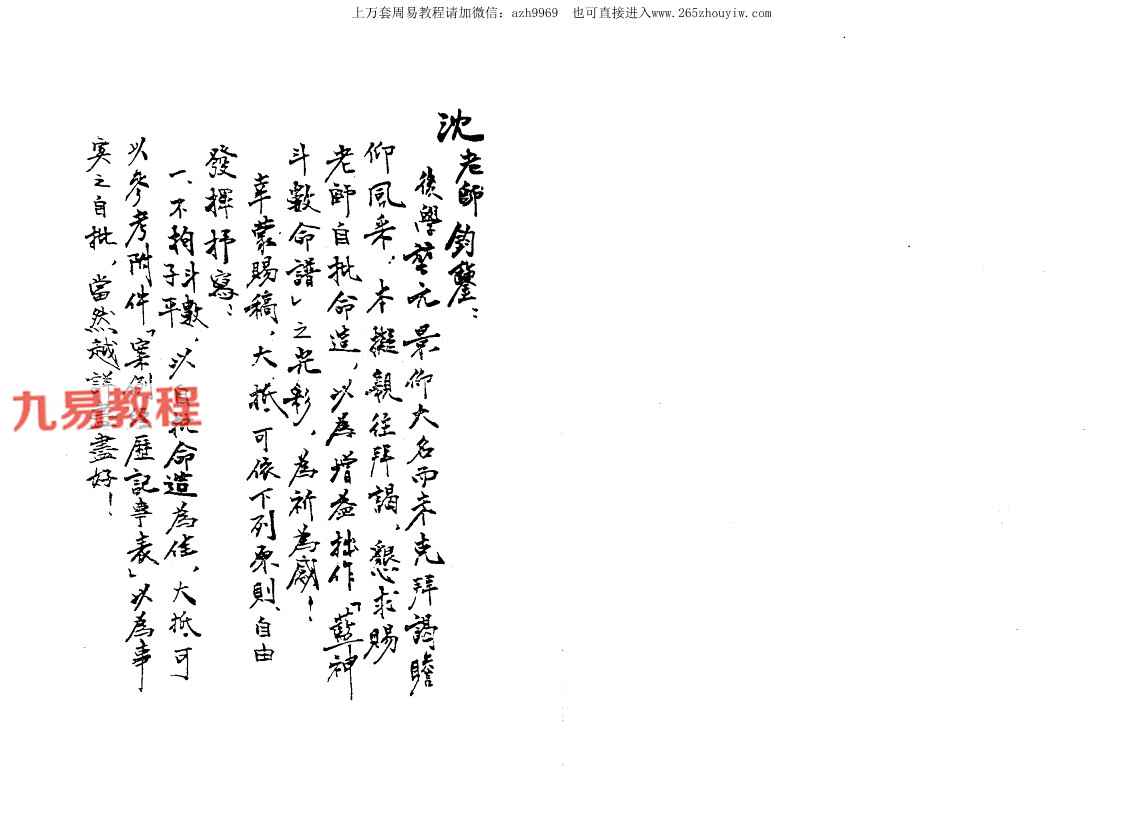 上万套周易教程请加微信：azh9969　也可直接进入www.265zhouyiw.com
沈老師鈞鑒：
後學堃元景仰大名而未克拜謁瞻
仰風采，本擬親往拜謁，懇求賜
老師自批命造，以為增益拙作「藍神
斗數命譜」之光彩，為祈為感！
幸蒙賜稿，大抵可依下列原則、自由
發揮抒寫：
一、不拘斗數、子平，以自批命造為佳，大抵可
以參考附件「案例經歷記事表」以為事
实之自批，當然越詳盡好！
九易教程